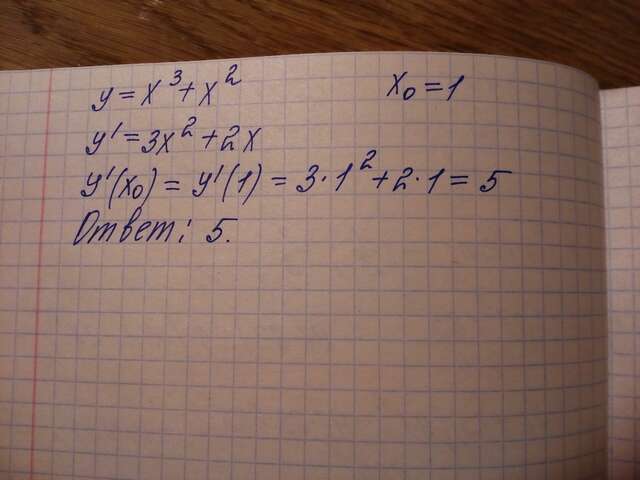 y = x³ + x² x₀ = 1
y' = 3x² + 2x
y'(x₀) = y'(1) = 3·1² + 2·1 = 5
Ответ: 5.